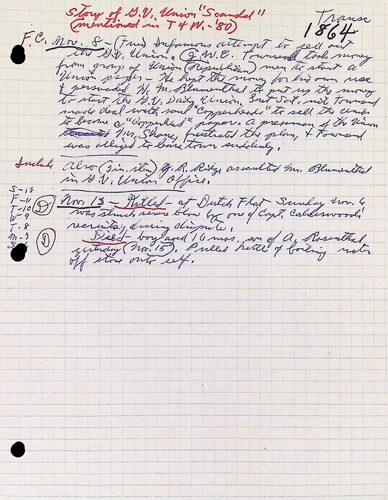 Story of G.V. Union "Scandal"
(mentioned in T & W. - '80)
Transc
1864
F.C. Nov. 8 - (Tues) Infamous attempt to sell out
the G.V. Union. O.W.E. Townsend took money
from group of Union (Republican) men to start a
Union paper - He kept the money for his own use
& persuaded N. M. Blumenthal to put up the money
to start the G.V. Daily Union. Instead,
made deal with some "Copperheads" to sell the
to become a "Copperhead" paper. A pressman of the Union
Mr. Shane, frustrated the plan, & Townsend
was obliged to leave town suddenly.
Include
Also (3in. item) J.R. Ridge assaulted Mr. Blumenthal
in G.V. Union Office.
S-13
F-11
T-10
W-9
T-8
M-7
S-6
D
Nov. 13 - Killed - at Dutch Flat - Sunday Nov. 6
was struck severe blow by one of Capt. Calderwood's
recruits, during dispute.
D
Died - boy aged 16 mos. son of A. Rosenthal,
yesterday (Nov. 15). Pulled kettle of boiling water
off stove onto self.